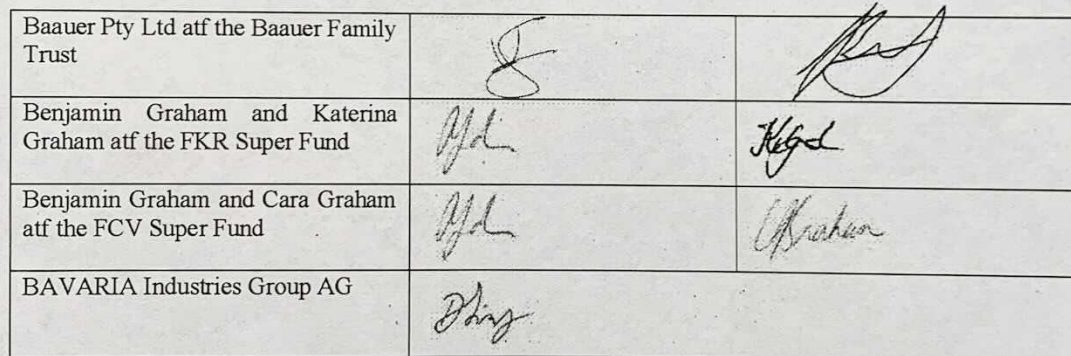 Baauer Pty Ltd atf the Baauer Family
Trust
Benjamin Graham and Katerina
Graham atf the FKR Super Fund
Benjamin Graham and Cara Graham
atf the FCV Super Fund
BAVARIA Industries Group AG